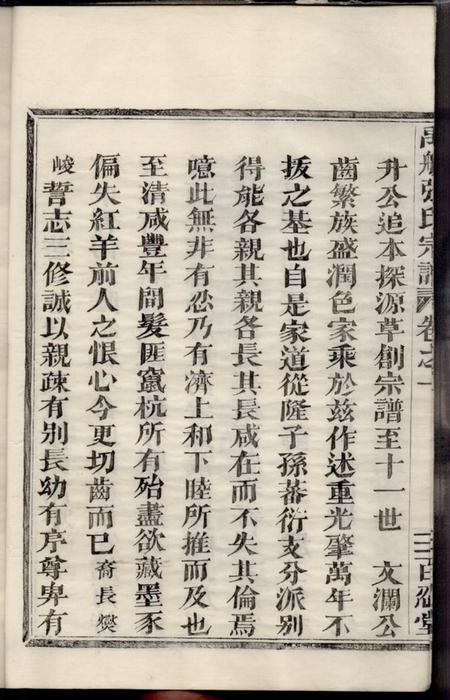 禹航張氏宗譜 卷之一 三 百忍堂
升公追本探源草創宗譜至十一世 文瀾公
齒繁族盛潤色家乘於玆作述重光肇萬年不
拔之基也自是家道從隆子孫蕃衍支分派別
得能各親其親各長其長咸在而不失其倫焉
噫此無非有忍乃有濟上和下睦所推而及也
至清咸豐年間髮匪竄杭所有殆盡欲藏墨家
偏失紅羊前人之恨心今更切齒而已 裔長爕
峻 誓志三修誠以親疎有别長幼有序尊卑有